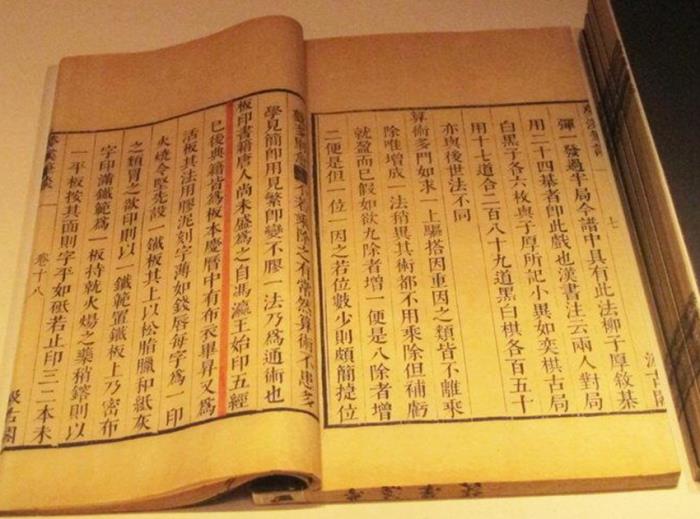 七
汲古閣
彈 發過半局今譜中具有此法柳子厚敘棊
用二十四棊者卽此戲也漢書注云兩人對局
白黑子各六枚與子厚所記小異如奕棋古局
用十七道合二百八十九道黑白棋各百五十
亦與後世法不同
算術多門如求一上驅搭因重因之類皆不離乘
除唯增成一法稍異其術都不用乘除但補虧
就盈而已假如欲九除者增一便是八除者增
二便是但一位一因之若位數少則頗簡捷位
不若乘除之有常然算術不患多
學見簡卽用見繁卽變不膠一法乃爲通術也
板印書籍唐人尚未盛爲之自馮瀛王始印五經
已後典籍皆爲板本慶曆中有布衣畢昇又爲
活板其法用膠泥刻字薄如錢唇每字爲一印
火燒令堅先設一鐵板其上以松脂臘和紙灰
之類冒之欲印則以一鐵範置鐵板上乃密布
字印滿鐵範爲一板持就火煬之藥稍鎔則以
一平板按其面則字平如砥若止印三二本未
夢溪筆談 卷十八
汲古閣